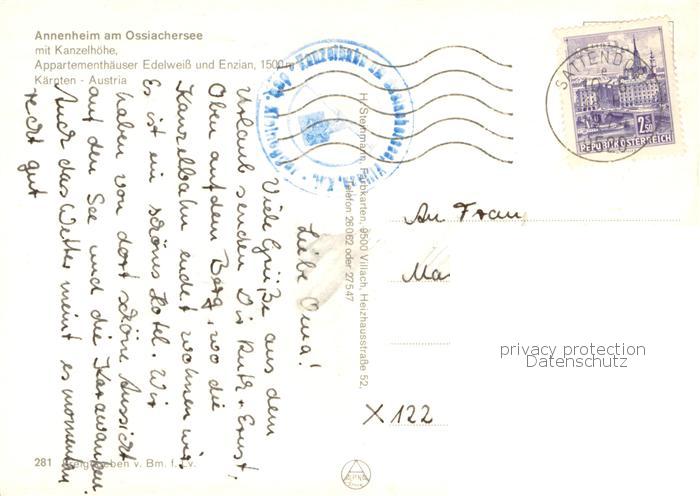 Annenheim am Ossiachersee
mit Kanzelhöhe,
Appartementhäuser Edelweiß und Enzian, 1500m
Kärnten - Austria
Liebe Oma!
Viele Grüße aus dem
Urlaub senden Dir Ruth + Ernst!
Oben auf dem Berg, wo die
Kanzelbahn endet wohnen wir.
Es ist ein schönes Hotel. Wir
haben von dort schöne Aussicht
auf den See und die Karawanken.
Auch das Wetter meint es momentan
recht gut
H. Steinmann, Farbkarten, 9500 Villach, Heizhausstraße 52,
Telefon 26062 oder 27547
SATTENDO
2.50
REPUBLIK ÖSTERREICH
An Frau
Ma
privacy protection
Datenschutz
X 122
281 Freigegeben v. Bm. f. Lv.